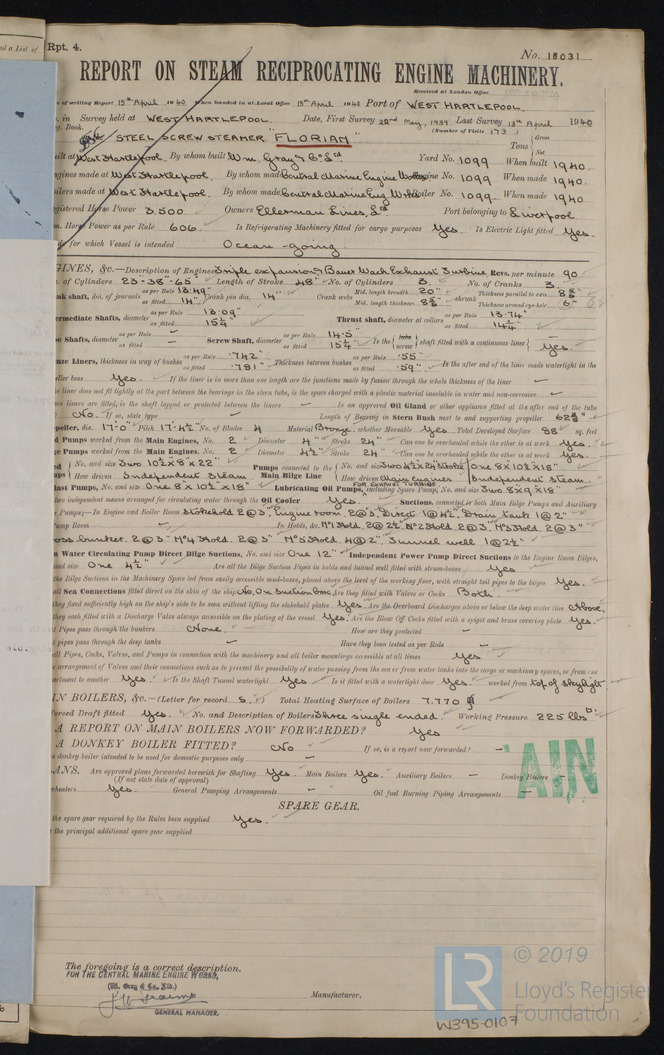 Rpt. 4.
No. 15031
REPORT ON STEAM RECIPROCATING ENGINE MACHINERY.
Received at London Office
of writing Report 15th April 1940 When handed in at Local Office 15th April 1940 Port of WEST HARTLEPOOL.
in Survey held at WEST HARTLEPOOL Date, First Survey 22nd May, 1939 Last Survey 13th April 1940
Book. (Number of Visits 173)
STEEL SCREW STEAMER "FLORIAN" Tons Gross Net
built at West Hartlepool. By whom built Wm. Gray & Co. Ltd Yard No. 1099 When built 1940.
Engines made at West Hartlepool. By whom made Central Marine Engine Works Engine No. 1099 When made 1940.
Boilers made at West Hartlepool. By whom made Central Marine Eng. Works Boiler No. 1099 When made 1940.
Registered Horse Power 3,500 Owners Ellerman Lines, Ltd Port belonging to Liverpool
Horse Power as per Rule 606. Is Refrigerating Machinery fitted for cargo purposes Yes. Is Electric Light fitted Yes.
for which Vessel is intended Ocean-going
GINES, &c.—Description of Engines Triple expansion & Bauer Wach Exhaust Turbine Revs. per minute 90
of Cylinders 23-38-65" Length of Stroke 48" No. of Cylinders 3. No. of Cranks 3.
shaft, dia. of journals as per Rule 13.49" as fitted 14" Crank pin dia. 14" Crank webs Mid. length breadth 20" Mid. length thickness 8⅝" shrunk Thickness parallel to axis 8⅝" Thickness around eye-hole 6"
ermediate Shafts, diameter as per Rule 13.09" as fitted 15¼" Thrust shaft, diameter at collars as per Rule 13.74" as fitted 14¼"
Shafts, diameter as per Rule – as fitted – Screw Shaft, diameter as per Rule 14.5" as fitted 15½" Is the screw shaft fitted with a continuous liner Yes.
Liners, thickness in way of bushes as per Rule .742" as fitted .781" Thickness between bushes as per Rule .55" as fitted .59" Is the after end of the liner made watertight in the
eller boss Yes. If the liner is in more than one length are the junctions made by fusion through the whole thickness of the liner –
liner does not fit tightly at the part between the bearings in the stern tube, is the space charged with a plastic material insoluble in water and non-corrosive –
liners are fitted, is the shaft lapped or protected between the liners – Is an approved Oil Gland or other appliance fitted at the after end of the tube
No. If so, state type – Length of Bearing in Stern Bush next to and supporting propeller 62⅝"
peller, dia. 17'-0" Pitch 17'-4½" No. of Blades 4 Material Bronze whether Moveable Yes Total Developed Surface 88 sq. feet
Pumps worked from the Main Engines, No. 2 Diameter 4" Stroke 24" Can one be overhauled while the other is at work Yes.
Pumps worked from the Main Engines, No. 2 Diameter 4½" Stroke 24" Can one be overhauled while the other is at work Yes.
No. and size Two 10½"x8"x22" Pumps connected to the Main Bilge Line No. and size Two 4½"x24" stroke One 8"x10½"x18"
How driven Independent steam How driven Main engines Independent steam.
last Pumps, No. and size One 8"x10½"x18" Lubricating Oil Pumps, including Spare Pump, No. and size Two 8"x9"x18"
FOR EXHAUST TURBINE
two independent means arranged for circulating water through the Oil Cooler Yes. Suctions, connected to both Main Bilge Pumps and Auxiliary
Pumps;—In Engine and Boiler Room Stokehold 2@3", Engine room 2@3", Direct 1@4½", Drain Tank 1@2"
Pump Room – In Holds, &c. No 1 Hold. 2@2½" No 2 Hold. 2@3". No 3 Hold. 2@3"
oss bunker. 2@3" No 4 Hold. 2@3" No 5 Hold. 4@2" Tunnel well 1@2½"
n Water Circulating Pump Direct Bilge Suctions, No. and size One 12" Independent Power Pump Direct Suctions to the Engine Room Bilges,
and size One 4½" Are all the Bilge Suction Pipes in holds and tunnel well fitted with strum-boxes Yes
the Bilge Suctions in the Machinery Space led from easily accessible mud-boxes, placed above the level of the working floor, with straight tail pipes to the bilges Yes.
all Sea Connections fitted direct on the skin of the ship No, On Suction box. Are they fitted with Valves or Cocks Both.
they fixed sufficiently high on the ship's side to be seen without lifting the stokehold plates Yes. Are the Overboard Discharges above or below the deep water line Above.
they each fitted with a Discharge Valve always accessible on the plating of the vessel Yes. Are the Blow Off Cocks fitted with a spigot and brass covering plate Yes.
Pipes pass through the bunkers None. How are they protected –
pipes pass through the deep tanks – Have they been tested as per Rule –
all Pipes, Cocks, Valves, and Pumps in connection with the machinery and all boiler mountings accessible at all times Yes
arrangement of Valves and their connections such as to prevent the possibility of water passing from the sea or from water tanks into the cargo or machinery spaces, or from one
partment to another Yes. Is the Shaft Tunnel watertight Yes Is it fitted with a watertight door Yes. worked from top of skylight
IN BOILERS, &c.—(Letter for record S.) Total Heating Surface of Boilers 7,770
Forced Draft fitted Yes. No. and Description of Boilers Three single ended. Working Pressure 225 lbs
A REPORT ON MAIN BOILERS NOW FORWARDED? Yes
A DONKEY BOILER FITTED? No If so, is a report now forwarded? –
donkey boiler intended to be used for domestic purposes only –
ANS. Are approved plans forwarded herewith for Shafting Yes. Main Boilers Yes. Auxiliary Boilers – Donkey Boilers –
(If not state date of approval)
rheaters Yes. General Pumping Arrangements – Oil fuel Burning Piping Arrangements –
SPARE GEAR.
the spare gear required by the Rules been supplied Yes.
the principal additional spare gear supplied
The foregoing is a correct description.
FOR THE CENTRAL MARINE ENGINE WORKS,
(W. Gray & Co. Ltd.)
GENERAL MANAGER.
Manufacturer.
LR © 2019
Lloyd's Register
Foundation
W395-0107